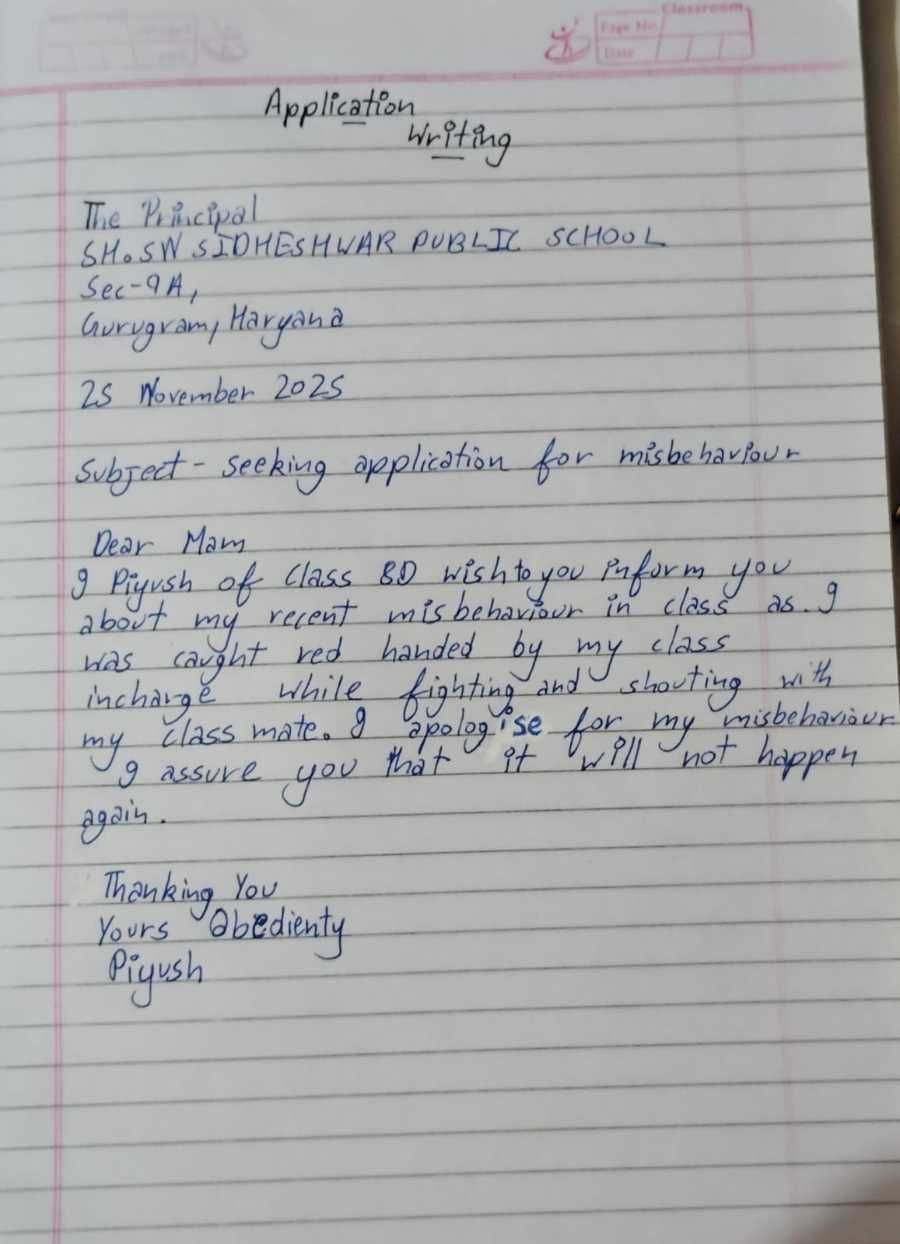 Classroom
Page No.
Date
Application
Writing
The Principal
SH.SW SIDHESHWAR PUBLIC SCHOOL
Sec-9A,
Gurugram, Haryana
25 November 2025
Subject - seeking application for misbehaviour
Dear Mam
I Piyush of class 8D wish to you inform you
about my recent misbehaviour in class as. I
was caught red handed by my class
incharge while fighting and shouting with
my class mate. I apologise for my misbehaviour
I assure you that it will not happen
again.
Thanking You
Yours Obedienty
Piyush